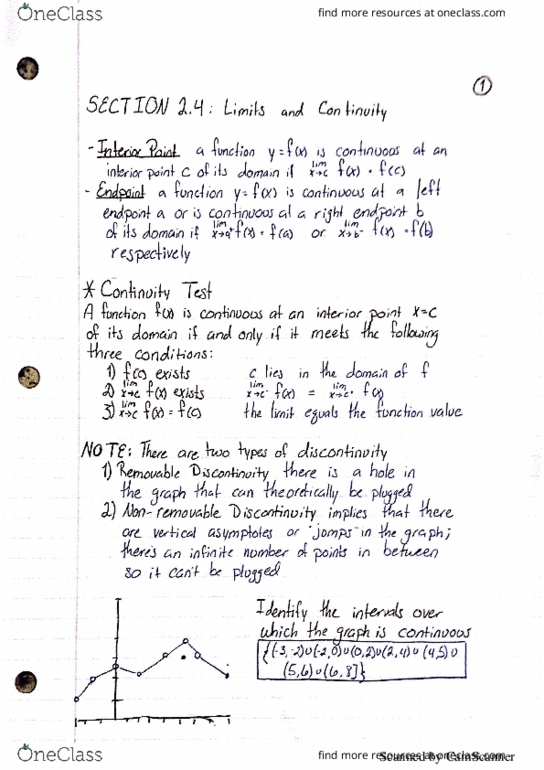 OneClass
find more resources at oneclass.com
1
SECTION 2.4: Limits and Continuity
- Interior Point a function y=f(x) is continuous at an
interior point c of its domain if lim x→c f(x) = f(c)
- Endpoint a function y=f(x) is continuous at a left
endpoint a or is continuous at a right endpoint b
of its domain if lim x→a⁺ f(x) = f(a) or lim x→b⁻ f(x) = f(b)
respectively
* Continuity Test
A function f(x) is continuous at an interior point x=c
of its domain if and only if it meets the following
three conditions:
1) f(c) exists c lies in the domain of f
2) lim x→c f(x) exists lim x→c⁻ f(x) = lim x→c⁺ f(x)
3) lim x→c f(x) = f(c) the limit equals the function value
NOTE: There are two types of discontinuity
1) Removable Discontinuity there is a hole in
the graph that can theoretically be plugged
2) Non-removable Discontinuity implies that there
are vertical asymptotes or "jumps" in the graph;
there's an infinite number of points in between
so it can't be plugged
Identify the intervals over
which the graph is continuous
{(-3,-2)∪(-2,0)∪(0,2)∪(2,4)∪(4,5)∪
(5,6)∪(6,8]}
OneClass
find more resources at oneclass.com
Scanned by CamScanner